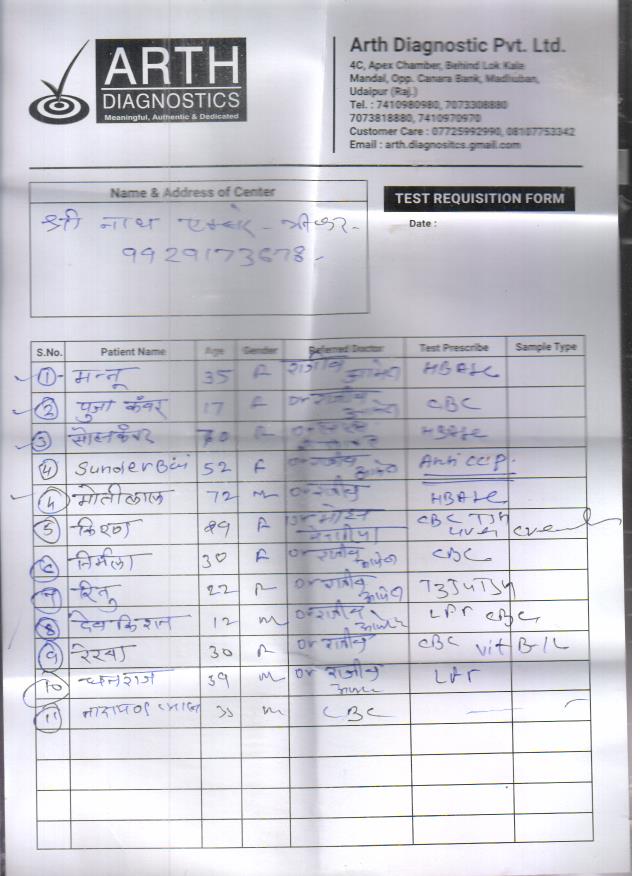 ARTH
DIAGNOSTICS
Meaningful, Authentic & Dedicated
Arth Diagnostic Pvt. Ltd.
4C, Apex Chamber, Behind Lok Kala
Mandal, Opp. Canara Bank, Madhuban,
Udaipur (Raj.)
Tel. : 7410980980, 7073308880
7073818880, 7410970970
Customer Care : 07725992990, 08107753342
Email : arth.diagnositcs.gmail.com
Name & Address of Center
TEST REQUISITION FORM
Date :
श्री नाथ
9929173678
S.No. Patient Name Age Gender Referred Doctor Test Prescribe Sample Type
1 मन्नू 35 F राजीव HBA1c
2 पुजा कँवर 17 F Dr राजीव CBC
3 F HBA1c
4 SunderBai 52 F Dr राजीव Anti CCP
4 मोतीलाल 72 M Dr राजीव HBA1c
5 किरण F Dr CBC TSH
6 निर्मला 30 F Dr राजीव CBC
7 रितु 22 F Dr राजीव T3T4TSH
8 देव किशन 12 M Dr राजीव LFT CBC
9 रेखा 30 F Dr राजीव CBC Vit B12
10 39 M Dr राजीव LFT
11 M CBC